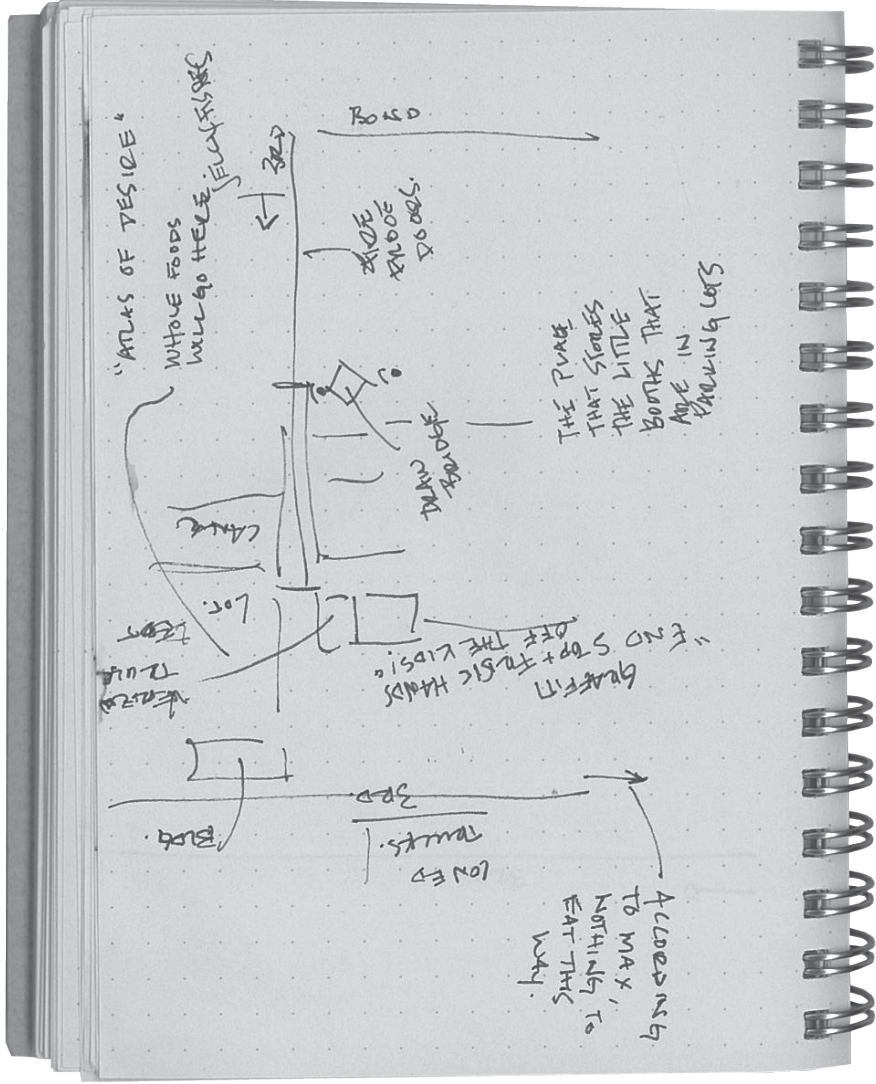 "ATLAS OF DESIRE"
WHOLE FOODS
WILL GO HERE.
JELLYFISHES
3RD
BOND
FIRE
PROOF
DOORS.
DRAW
BRIDGE
THE PLACE
THAT STORES
THE LITTLE
BOOTHS THAT
ARE IN
PARKING LOTS
CANAL
LOT.
VERIZON
TRUCK
"END
STOP + FRISK HANDS
OFF THE KIDS!"
GRAFFITI
BLDG.
3RD
TRUCKS.
ACCORDING
TO MAX,
NOTHING TO
EAT THIS
WAY.